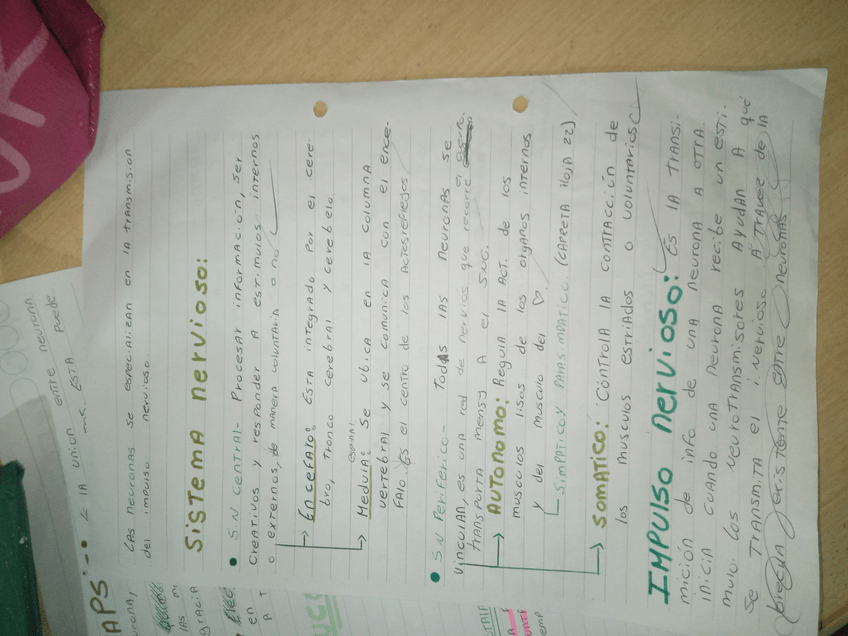 Las neuronas se especializan en la transmision
del impulso nervioso.
Sistema nervioso:
• S.N Central- Procesar informacion, ser
creativos y responder a estimulos internos
o externos, de manera voluntaria o no
→ Encefalo: Esta integrado por el cere-
bro, tronco cerebral y cerebelo.
espinal
→ Medula: Se ubica en la columna
vertebral y se comunica con el ence-
falo. Es el centro de los actos reflejos
• S.N Periferico- Todas las neuronas se
vinculan, es una red de nervios que recorre el
transporta mensj a el SNC.
→ Autonomo: Regula la act. de los
musculos lisos de los organos internos
y del musculo del ♡
Simpatico y Parasimpatico (carpeta hoja 22)
→ Somatico: Controla la contracción de
los musculos estriados o voluntarios
Impulso nervioso: Es la transi-
mición de info de una neurona a otra.
inicia cuando una neurona recibe un esti-
mulo. los neurotransmisores ayudan a que
se transmita el i. nervioso a travez de la
brecha existente entre neuronas
aps:
la union entre neurona
Esta puede